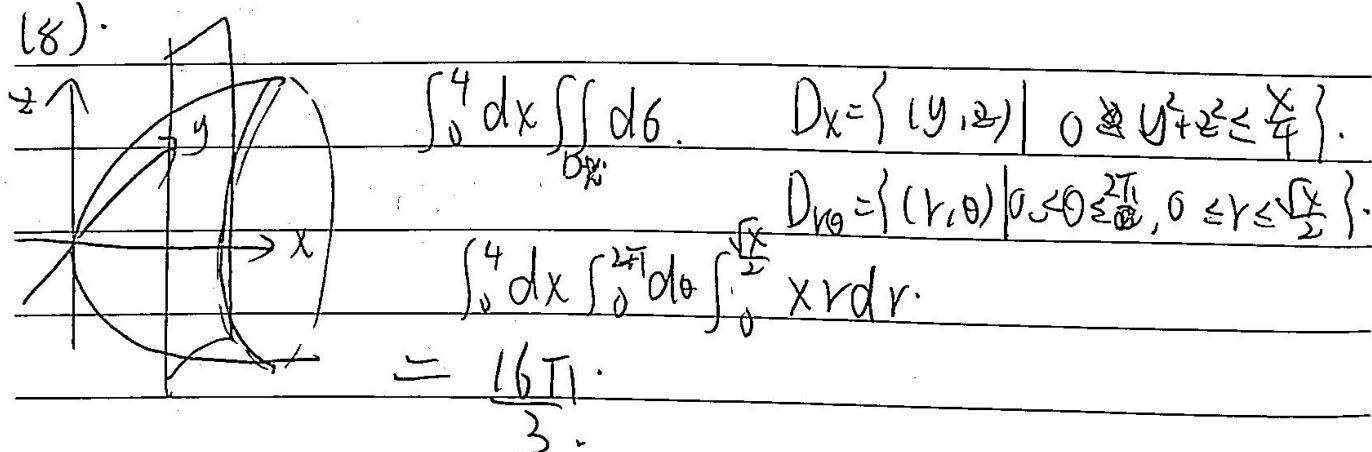 (8).
z y x
∫₀⁴ dx ∬_{Dx} dσ. Dx = { (y,z) | 0 ≤ y²+z² ≤ x/4 }.
D_{rθ} = { (r,θ) | 0 ≤ θ ≤ 2π, 0 ≤ r ≤ √x/2 }.
∫₀⁴ dx ∫₀^{2π} dθ ∫₀^{√x/2} x r dr.
= 16π/3.